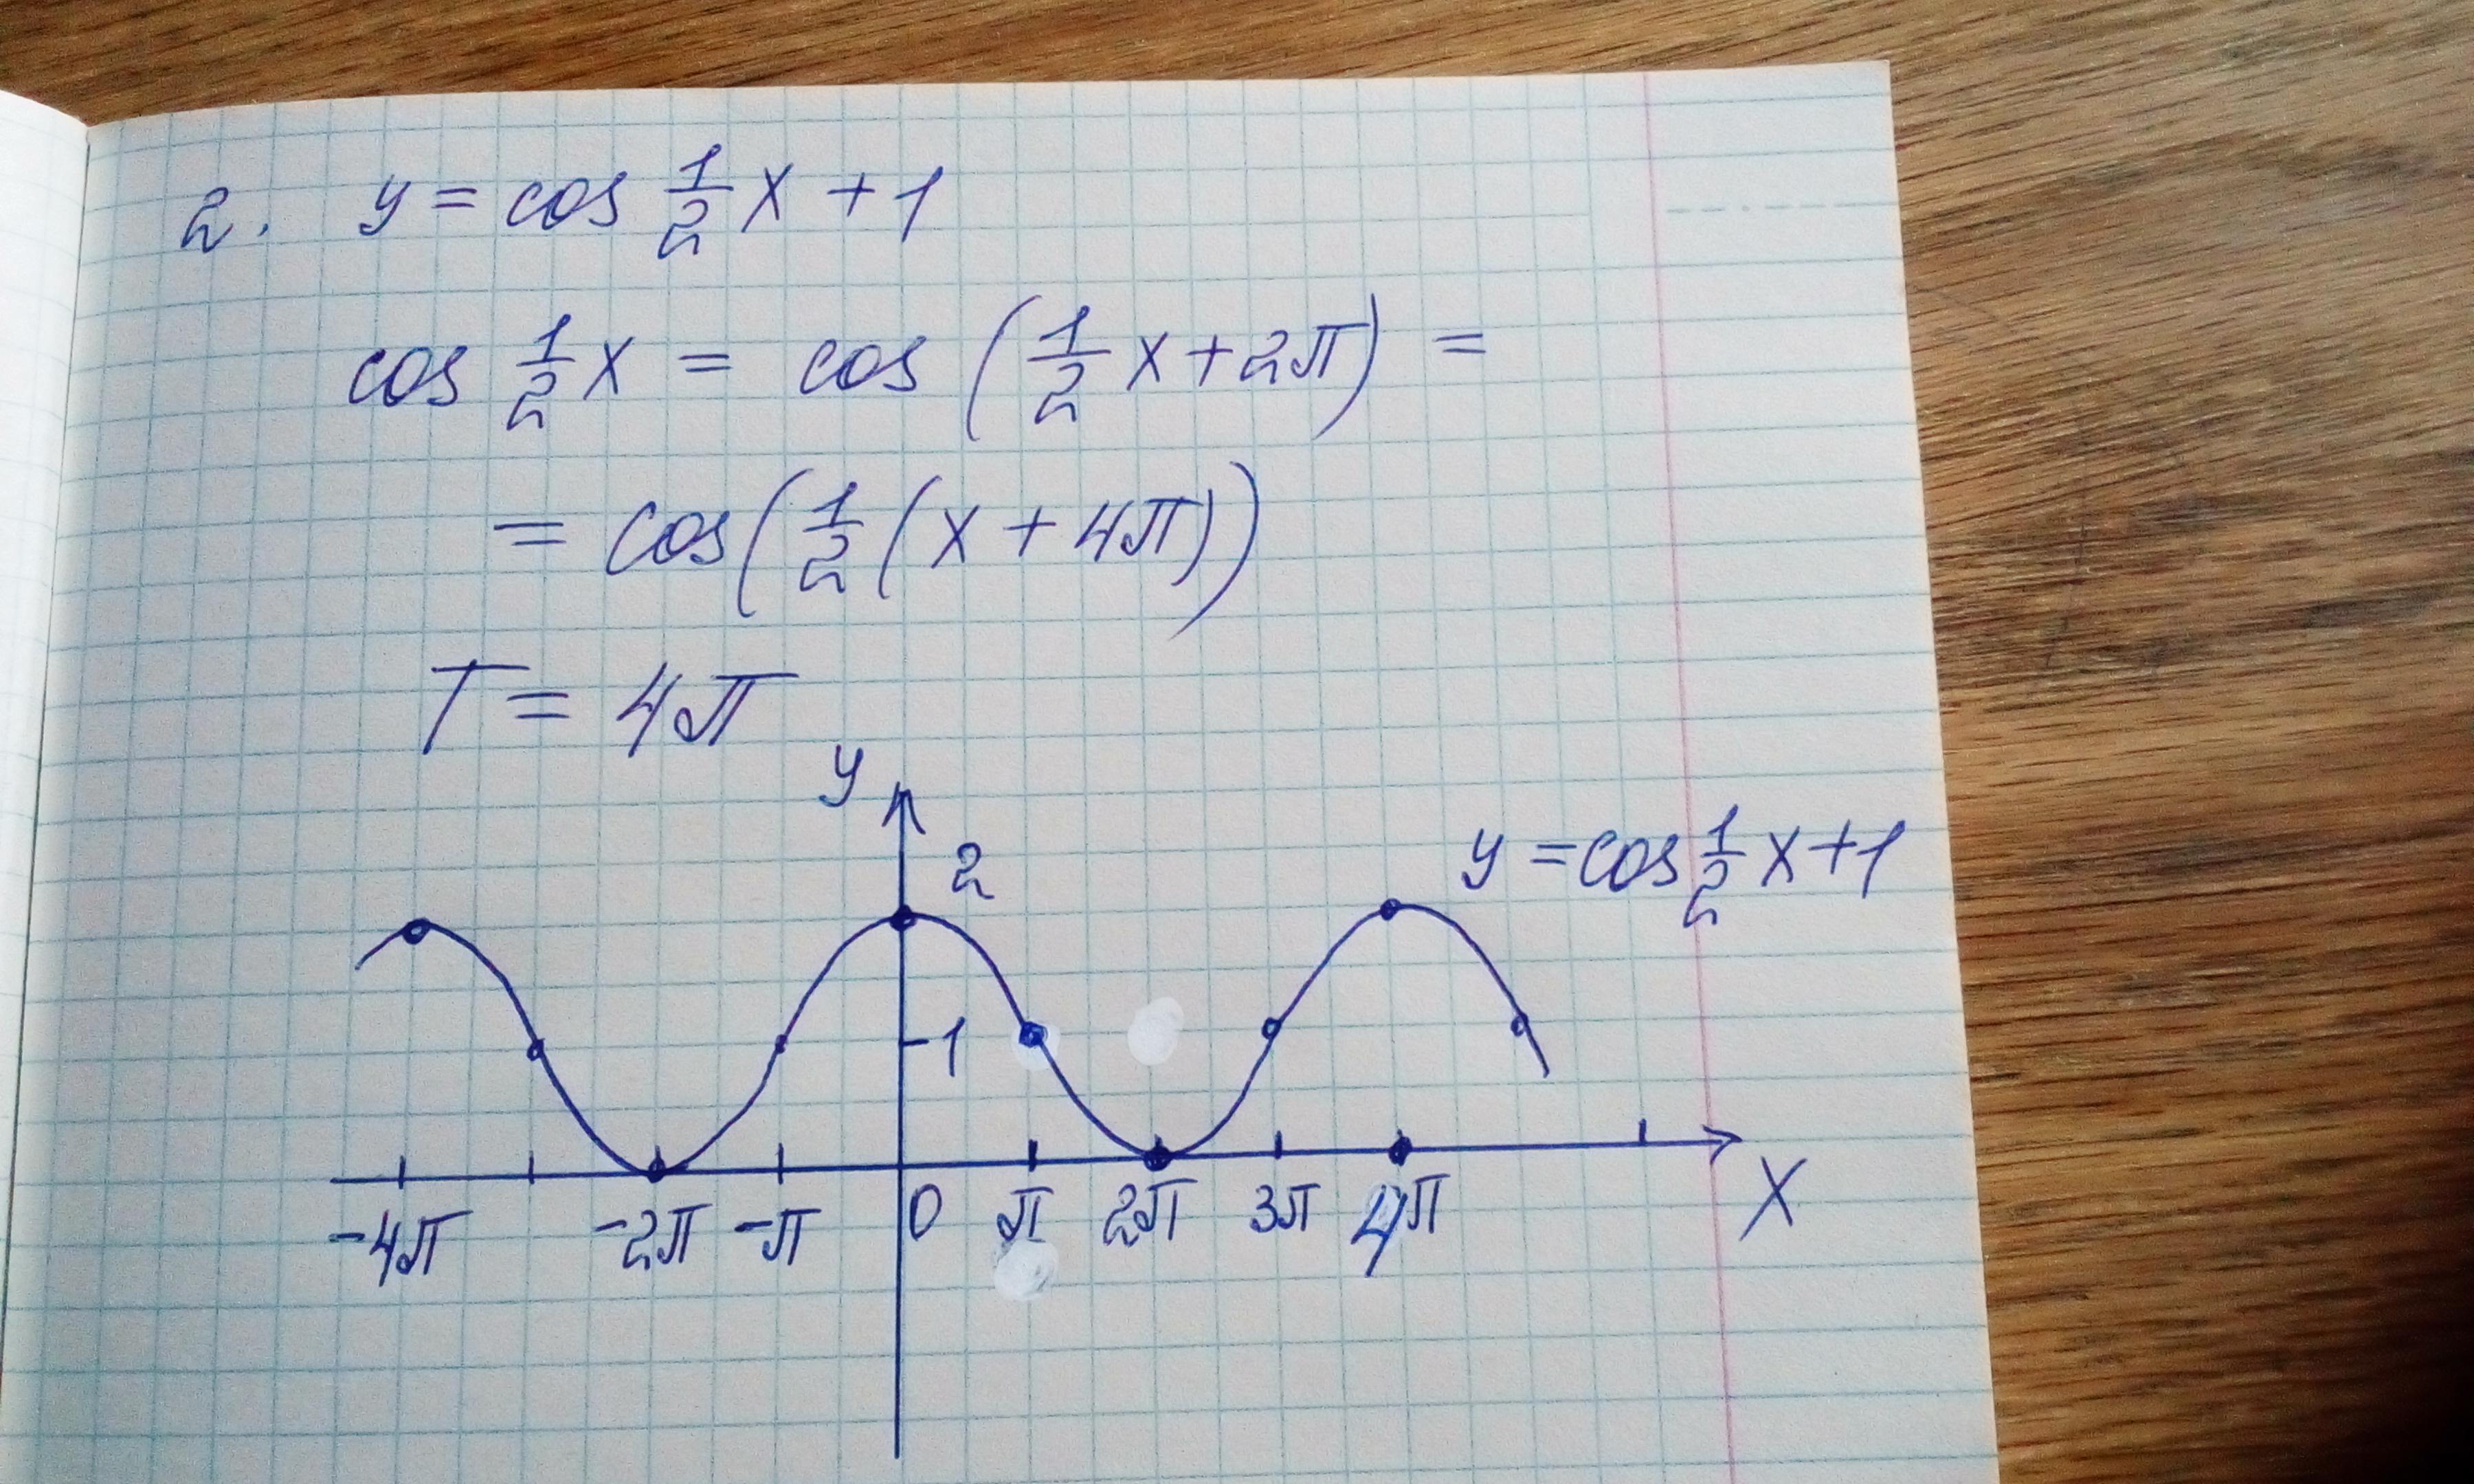 2. y = cos 1/2 x + 1
cos 1/2 x = cos (1/2 x + 2π) =
= cos(1/2 (x + 4π))
T = 4π
y
2
y = cos 1/2 x + 1
1
-4π -2π -π 0 π 2π 3π 4π X